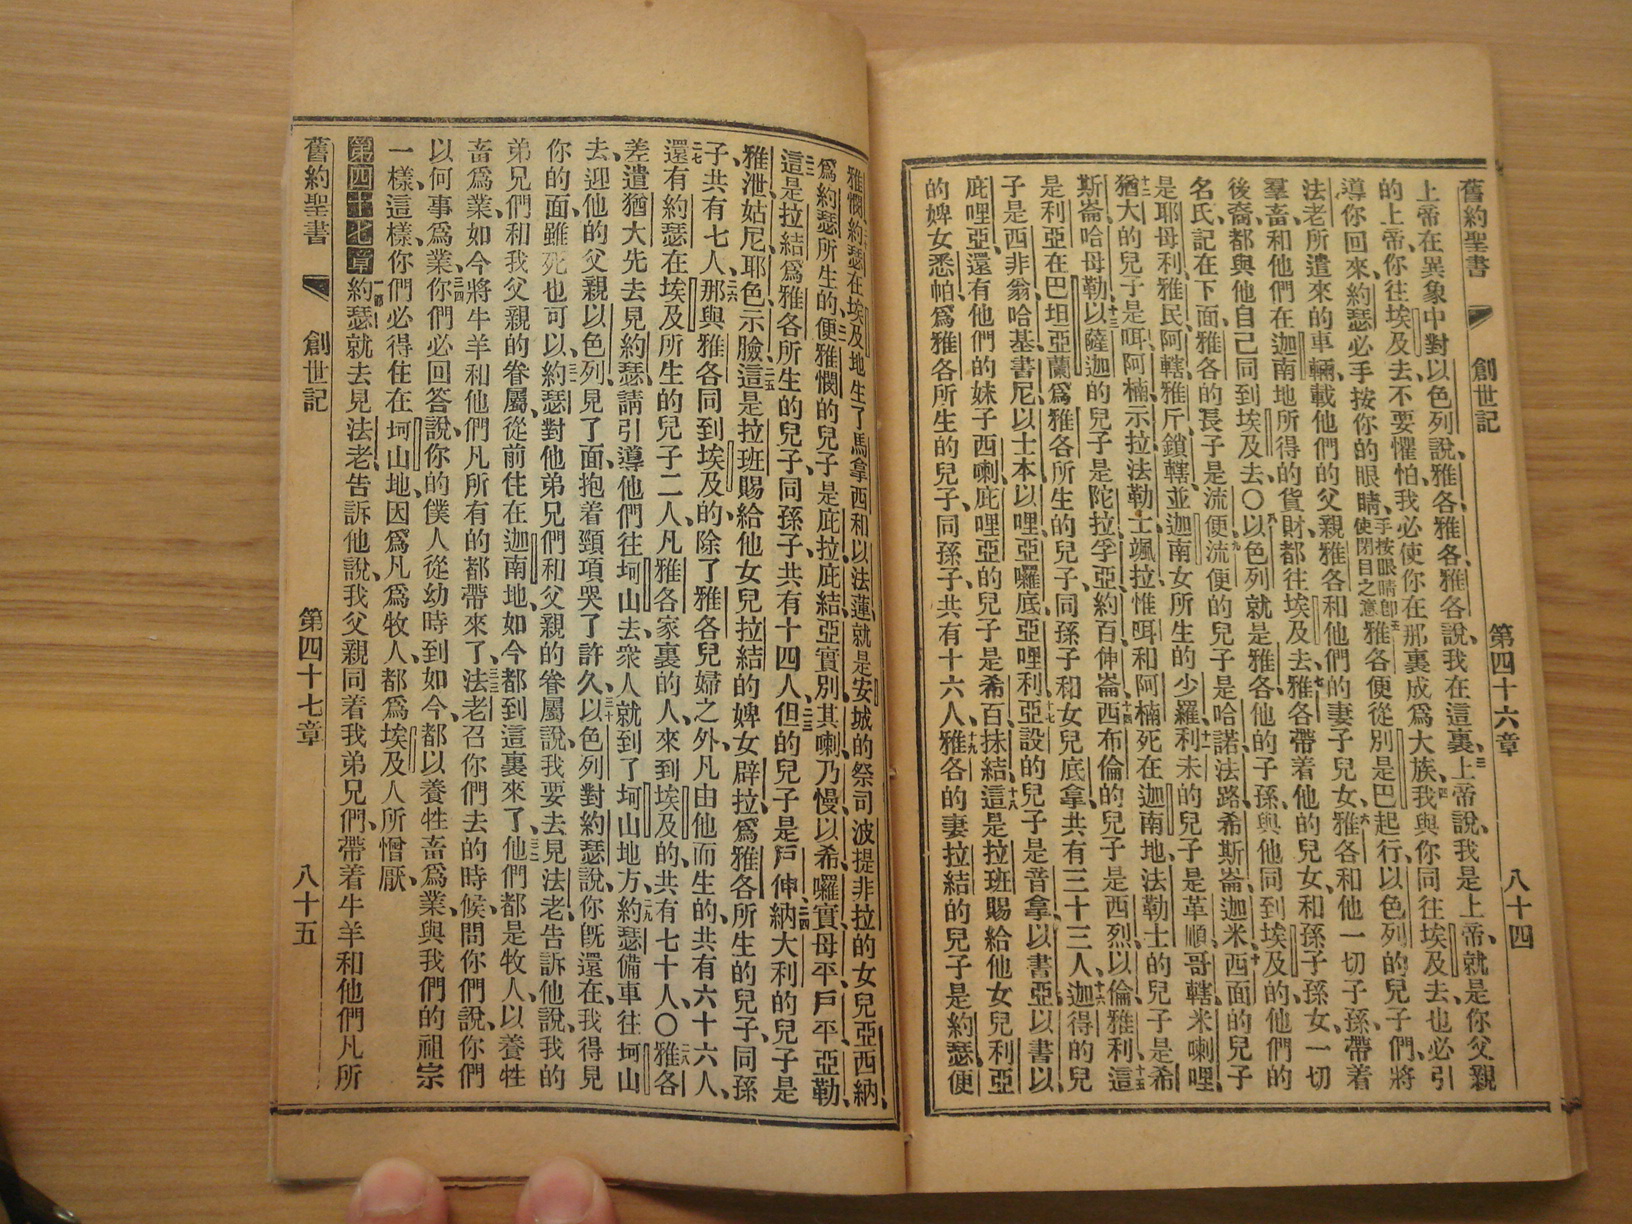 舊約聖書 創世記 第四十六章 八十四
上帝在異象中對以色列說、雅各雅各、雅各說、我在這裏、三上帝說、我是上帝、就是你父親
的上帝、你往埃及去不要懼怕、我必使你在那裏成爲大族、四我與你同往埃及去、也必引
導你回來、約瑟必手按你的眼睛、手按眼睛卽使閉目之意五雅各便從別是巴起行、以色列的兒子們、將
法老所遣來的車輛、載他們的父親雅各和他們的妻子兒女、六雅各和他一切子孫、帶着
羣畜、和他們在迦南地所得的貨財、都往埃及去、七雅各帶着他的兒女、和孫子孫女、一切
後裔、都與他自己同到埃及去、〇八以色列就是雅各、他的子孫與他同到埃及的、他們的
名氏記在下面、雅各的長子是流便、九流便的兒子是哈諾法路希斯崙迦米、十西面的兒子
是耶母利雅民阿轄雅斤鎖轄、並迦南女所生的少羅、十一利未的兒子是革順哥轄米喇哩、
十二猶大的兒子是咡阿楠示拉法勒士颯拉、惟咡和阿楠死在迦南地、法勒士的兒子是希
斯崙哈母勒、十三以薩迦的兒子是陀拉孚亞約百伸崙、十四西布倫的兒子是西烈以倫雅利、十五這
是利亞在巴坦亞蘭爲雅各所生的兒子、同孫子和女兒底拿共有三十三人、十六迦得的兒
子是西非翁哈基書尼以士本以哩亞囉底亞哩利、十七亞設的兒子是音拿以書亞以書以
庇哩亞、還有他們的妹子西喇、庇哩亞的兒子是希百抹結、十八這是拉班賜給他女兒利亞
的婢女悉帕爲雅各所生的兒子、同孫子、共有十六人、十九雅各的妻拉結的兒子是約瑟便
雅憫、二十約瑟在埃及地生了馬拿西和以法蓮、就是安城的祭司波提非拉的女兒亞西納、
爲約瑟所生的、二一便雅憫的兒子、是庇拉、庇結、亞實別、其喇、乃慢、以希、囉實、母平、戶平、亞勒、
二二這是拉結爲雅各所生的兒子、同孫子、共有十四人、二三但的兒子是戶伸、二四納大利的兒子是
雅泄、姑尼、耶色、示臉、二五這是拉班賜給他女兒拉結的婢女辟拉、爲雅各所生的兒子、同孫
子、共有七人、二六那與雅各同到埃及的、除了雅各兒婦之外、凡由他而生的、共有六十六人、
二七還有約瑟在埃及所生的兒子二人、凡雅各家裏的人、來到埃及的、共有七十人、〇二八雅各
差遣猶大先去見約瑟、請引導他們往坷山去、衆人就到了坷山地方、二九約瑟備車往坷山
去、迎他的父親以色列、見了面、抱着頸項哭了許久、三十以色列對約瑟說、你旣還在、我得見
你的面、雖死也可以、三一約瑟對他弟兄們和父親的眷屬說、我要去見法老告訴他說、我的
弟兄們和我父親的眷屬、從前住在迦南地、如今都到這裏來了、三二他們都是牧人、以養牲
畜爲業、如今將牛羊和他們凡所有的都帶來了、三三法老召你們去的時候、問你們說、你們
以何事爲業、三四你們必回答說、你的僕人從幼時到如今、都以養牲畜爲業、與我們的祖宗
一樣、這樣、你們必得住在坷山地、因爲凡爲牧人、都爲埃及人所憎厭、
第四十七章一節約瑟就去見法老、告訴他說、我父親同着我弟兄們、帶着牛羊和他們凡所
舊約聖書 創世記 第四十七章 八十五